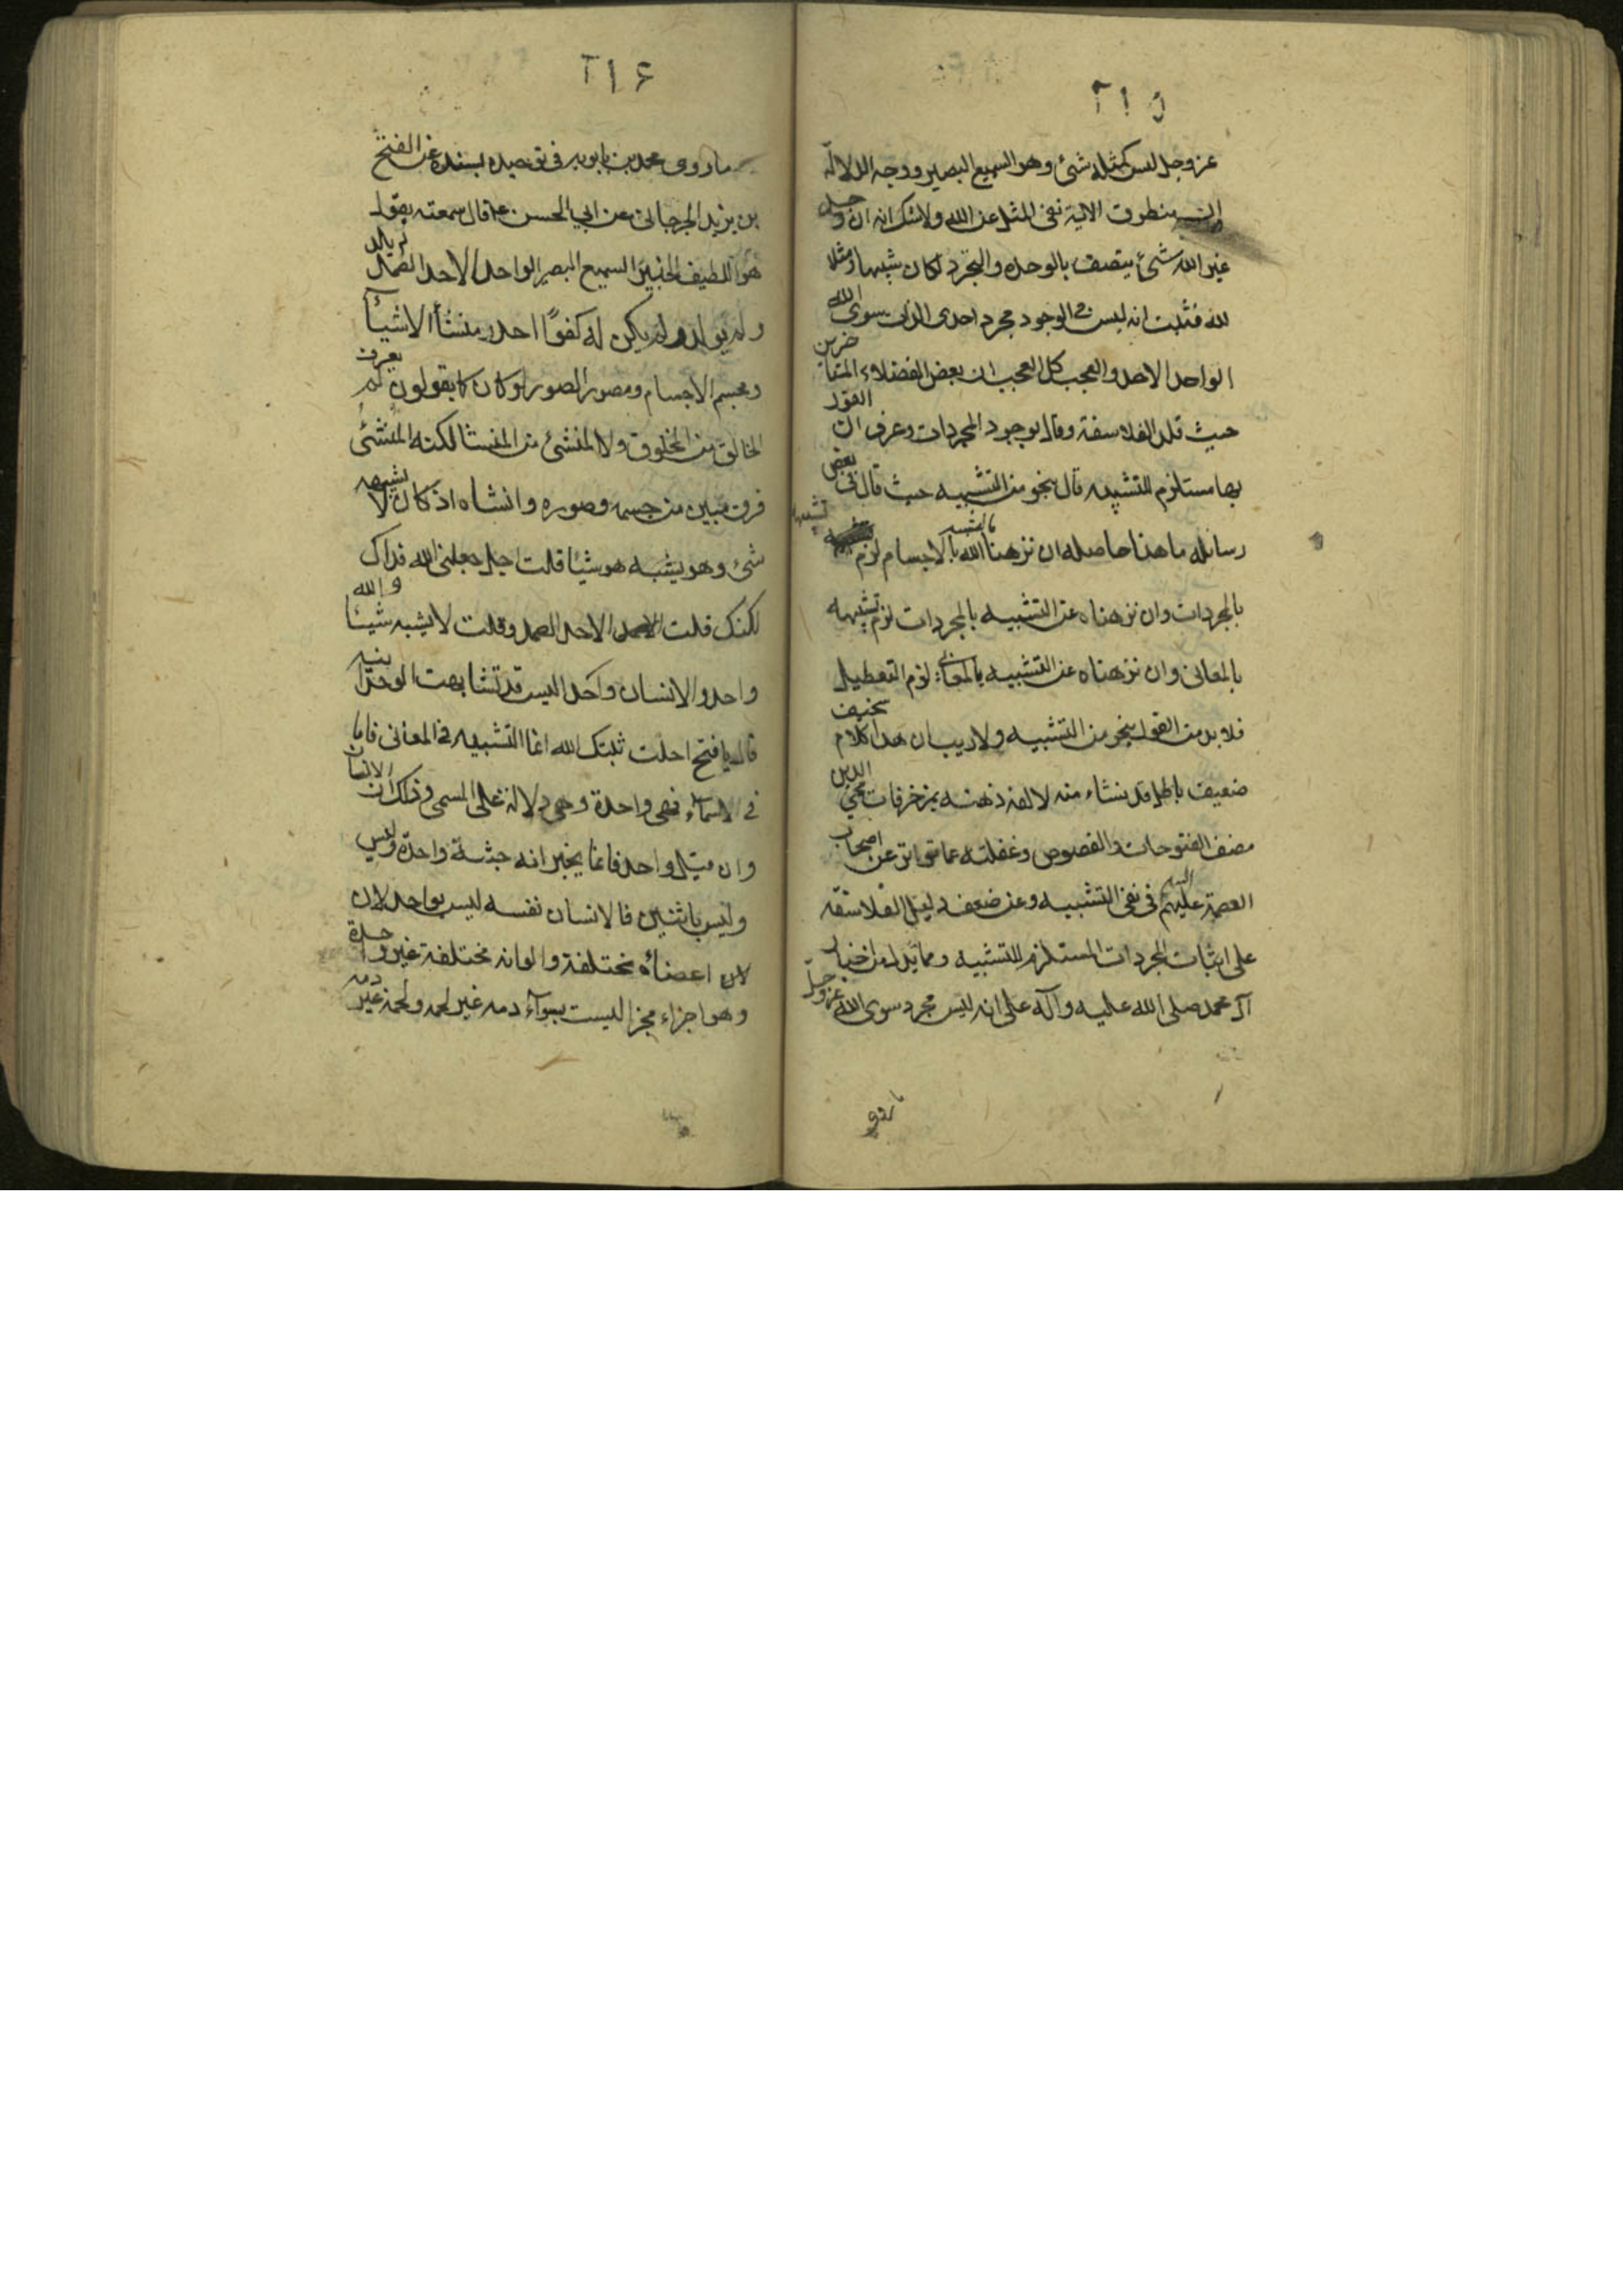 ٢١٥
عز وجل ليس كمثله شئ وهو السميع البصير ووجه الدلالة
ان منطوق الاية نفى المثل عن الله ولا شك انه ان وجد
غير الله شئ يتصف بالوحدة والتجرد لكان شبيها ومثلا
لله فثبت انه ليس في الوجود مجرد احدى الذات سوى الله
الواحد الاحد والعجب كل العجب ان بعض الفضلاء المتاخرين
حيث قلد الفلاسفة وقال بوجود المجردات وعرف ان القول
بها مستلزم للتشبيه قال بنحو من التشبيه حيث قال في بعض
رسائله ما هذا حاصله ان نزهنا الله بالاجسام لزم تشبيهه
بالمجردات وان نزهناه عن التشبيه بالمجردات لزم تشبيهه
بالمعانى وان نزهناه عن التشبيه بالمعانى لزم التعطيل
فلا بد من القول بنحو من التشبيه ولا ريب ان هذا كلام سخيف
ضعيف باطل قد ينشاء منه لالفه ذهنه بمزخرفات محيي الدين
مصنف الفتوحات والفصوص وغفلته عما تواتر عن اصحاب
العصمة عليهم السلم في نفى التشبيه وعن ضعف دليل الفلاسفة
على اثبات المجردات المستلزم للتشبيه ومما يدل من اخبار
آل محمد صلى الله عليه وآله على انه ليس مجرد سوى الله عز وجل
ما روى
٢١۶
ما روى محمد بن بابويه في توحيده بسنده عن الفتح
بن يزيد الجرجانى عن ابي الحسن ع قال سمعته يقول
هو اللطيف الخبير السميع البصير الواحد الاحد الصمد لم يلد
ولم يولد ولم يكن له كفوًا احد منشأ الاشيآء
ومجسم الاجسام ومصور الصور لو كان كما يقولون لم يعرف
الخالق من المخلوق ولا المنشئ من المنشا لكنه المنشئ
فرق مبين من جسمه وصوره وانشاه اذ كان لا يشبهه
شئ وهو يشبه هو شيئا قلت اجل جعلنى الله فداك
لكنك قلت الاحد الصمد وقلت لا يشبه شيئا والله
واحد والانسان واحد اليس قد تشابهت الوحدانية
قال يا فتح احلت ثبتك الله انما التشبيه في المعانى فاما
في الاسماء فهى واحدة وهى دلالة على المسمى وذلك ان الانسان
وان قيل واحد فانما يخبر انه جثة واحدة وليس
وليس باثنين فالانسان نفسه ليس بواحد لان
لان اعضاءه مختلفة والوانه مختلفة غير واحدة
وهو اجزاء مجزا ليست بسوآء دمه غير لحمه ولحمه غير دمه